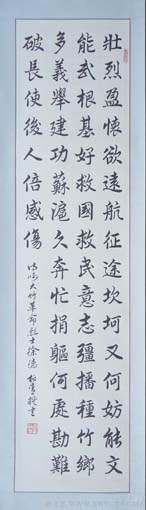 壯烈盈懷欲遠航征途坎坷又何妨能文
能武根基好救國救民意志疆播種竹鄉
多義舉建功蘇滬久奔忙捐軀何處勘難
破長使後人倍感傷
大竹革命烈士徐德